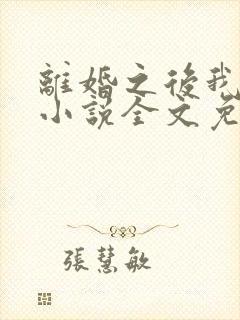 離婚之後我
小說全文免
張慧敏